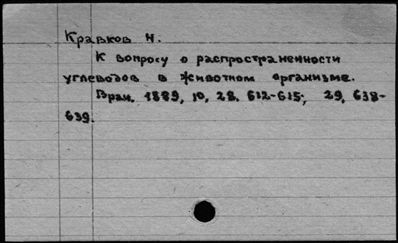 Кравков Н.
К вопросу о распространенности
углеводов в животном организме.
Врач. 1889, 10, 28, 612-615; 29, 638-
639.